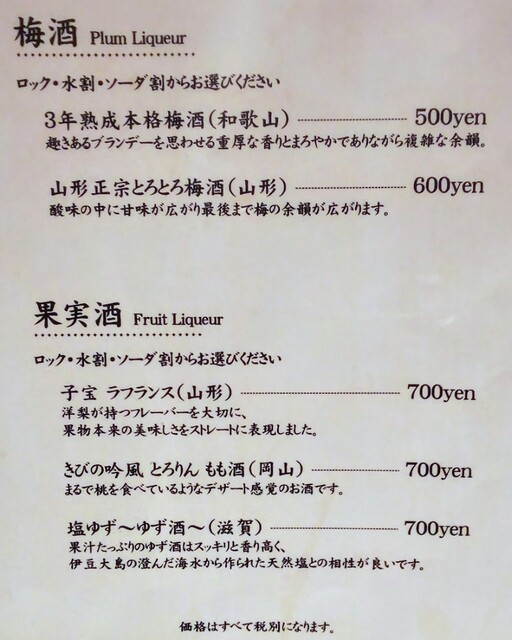 梅酒 Plum Liqueur
ロック・水割・ソーダ割からお選びください
3年熟成本格梅酒(和歌山) 500yen
趣きあるブランデーを思わせる重厚な香りとまろやかでありながら複雑な余韻。
山形正宗とろとろ梅酒(山形) 600yen
酸味の中に甘味が広がり最後まで梅の余韻が広がります。
果実酒 Fruit Liqueur
ロック・水割・ソーダ割からお選びください
子宝 ラフランス(山形) 700yen
洋梨が持つフレーバーを大切に、
果物本来の美味しさをストレートに表現しました。
きびの吟風 とろりん もも酒(岡山) 700yen
まるで桃を食べているようなデザート感覚のお酒です。
塩ゆず〜ゆず酒〜(滋賀) 700yen
果汁たっぷりのゆず酒はスッキリと香り高く、
伊豆大島の澄んだ海水から作られた天然塩との相性が良いです。
価格はすべて税別になります。